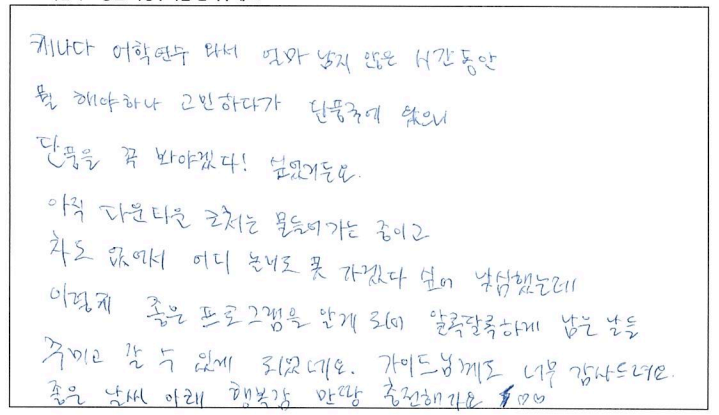 캐나다 어학연수 와서 얼마 남지 않은 시간동안
뭘 해야하나 고민하다가 단풍국에 왔으니
단풍을 꼭 봐야겠다! 싶었거든요.
아직 다운타운 근처는 물들어가는 중이고
차도 없어서 어디 놀러도 못 가겠다 싶어 낙심했는데
이렇게 좋은 프로그램을 알게 되어 알록달록하게 남은 날들
꾸미고 갈 수 있게 되었네요. 가이드님께도 너무 감사드려요.
좋은 날씨 아래 행복감 만땅 충전해가요